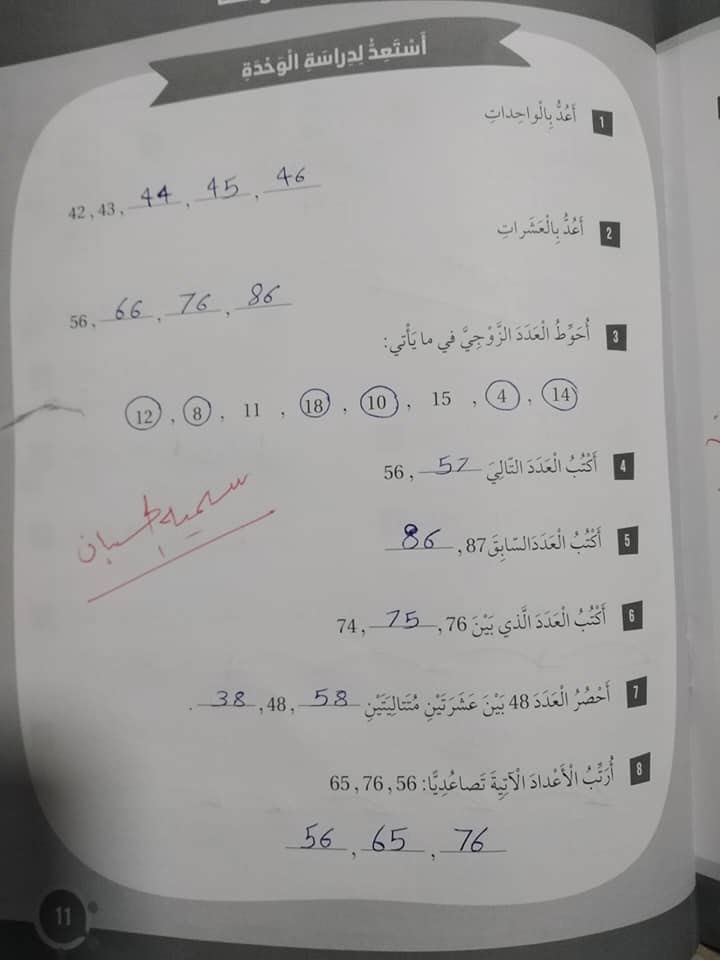 أَسْتَعِدُّ لِدِراسَةِ الْوَحْدَةِ
1 أَعُدُّ بِالْواحِداتِ
42 , 43 , 44 , 45 , 46
2 أَعُدُّ بِالْعَشَراتِ
56 , 66 , 76 , 86
3 أُحَوِّطُ الْعَدَدَ الزَّوْجِيَّ في ما يَأْتي:
12 , 8 , 11 , 18 , 10 , 15 , 4 , 14
4 أَكْتُبُ الْعَدَدَ التّالِيَ 57 , 56
5 أَكْتُبُ الْعَدَدَ السّابِقَ 87 , 86
6 أَكْتُبُ الْعَدَدَ الَّذي بَيْنَ 76 , 75 , 74
7 أَحْصُرُ الْعَدَدَ 48 بَيْنَ عَشَرَتَيْنِ مُتَتالِيَتَيْنِ 58 , 48 , 38 .
8 أُرَتِّبُ الْأَعْدادَ الْآتِيَةَ تَصاعُدِيًّا: 56 , 76 , 65
56 , 65 , 76
11